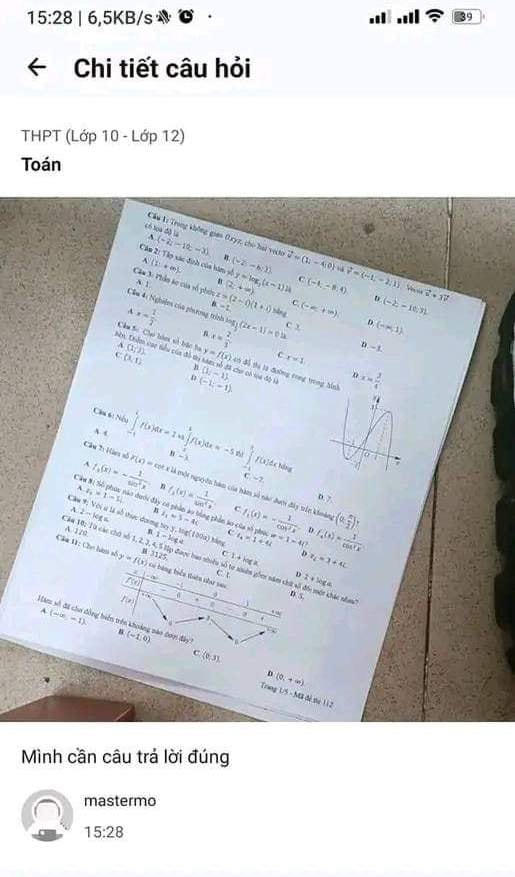 15:28 | 6,5KB/s
39
← Chi tiết câu hỏi
THPT (Lớp 10 - Lớp 12)
Toán
Câu 1: Trong không gian Oxyz, cho hai vectơ u = (1; −4; 0) và v = (−1; −2; 1). Vectơ u + 3v
có tọa độ là
A. (−2; −10; −3). B. (−2; −6; 3). C. (−4; −8; 4). D. (−2; −10; 3).
Câu 2: Tập xác định của hàm số y = log (x − 1) là
A. (1; +∞). B. (2; +∞). C. (−∞; +∞). D. (−∞; 1).
Câu 3: Phần ảo của số phức z = (2 − i)(1 + i) bằng
A. 1. B. −1. C. 3. D. −3.
Câu 4: Nghiệm của phương trình log (2x − 1) = 0 là
C. x = 1.
Câu 5: Cho hàm số bậc ba y = f(x) có đồ thị là đường cong trong hình
bên. Điểm cực tiểu của đồ thị hàm số đã cho có tọa độ là
A. (1; 3). B. (3; −1).
C. (3; 1). D. (−1; −1).
Câu 6: Nếu ∫ f(x)dx = 2 và ∫ f(x)dx = −5 thì ∫ f(x)dx bằng
B. −3. D. 7.
Câu 7: Hàm số F(x) = cot x là một nguyên hàm của hàm số nào dưới đây trên khoảng (0; π/2)?
Câu 8: Số phức nào dưới đây có phần ảo bằng phần ảo của số phức w = 1 − 4i?
Câu 9: Với a là số thực dương tùy ý, log(100a) bằng
A. 2 − log a. B. 1 − log a. C. 1 + log a. D. 2 + log a.
Câu 10: Từ các chữ số 1, 2, 3, 4, 5 lập được bao nhiêu số tự nhiên gồm năm chữ số đôi một khác nhau?
A. 120. B. 3125. C. 1. D. 5.
Câu 11: Cho hàm số y = f(x) có bảng biến thiên như sau:
Hàm số đã cho đồng biến trên khoảng nào dưới đây?
A. (−∞; −1). B. (−1; 0). C. (0; 3). D. (0; +∞).
Trang 1/5 - Mã đề thi 112
Mình cần câu trả lời đúng
mastermo
15:28